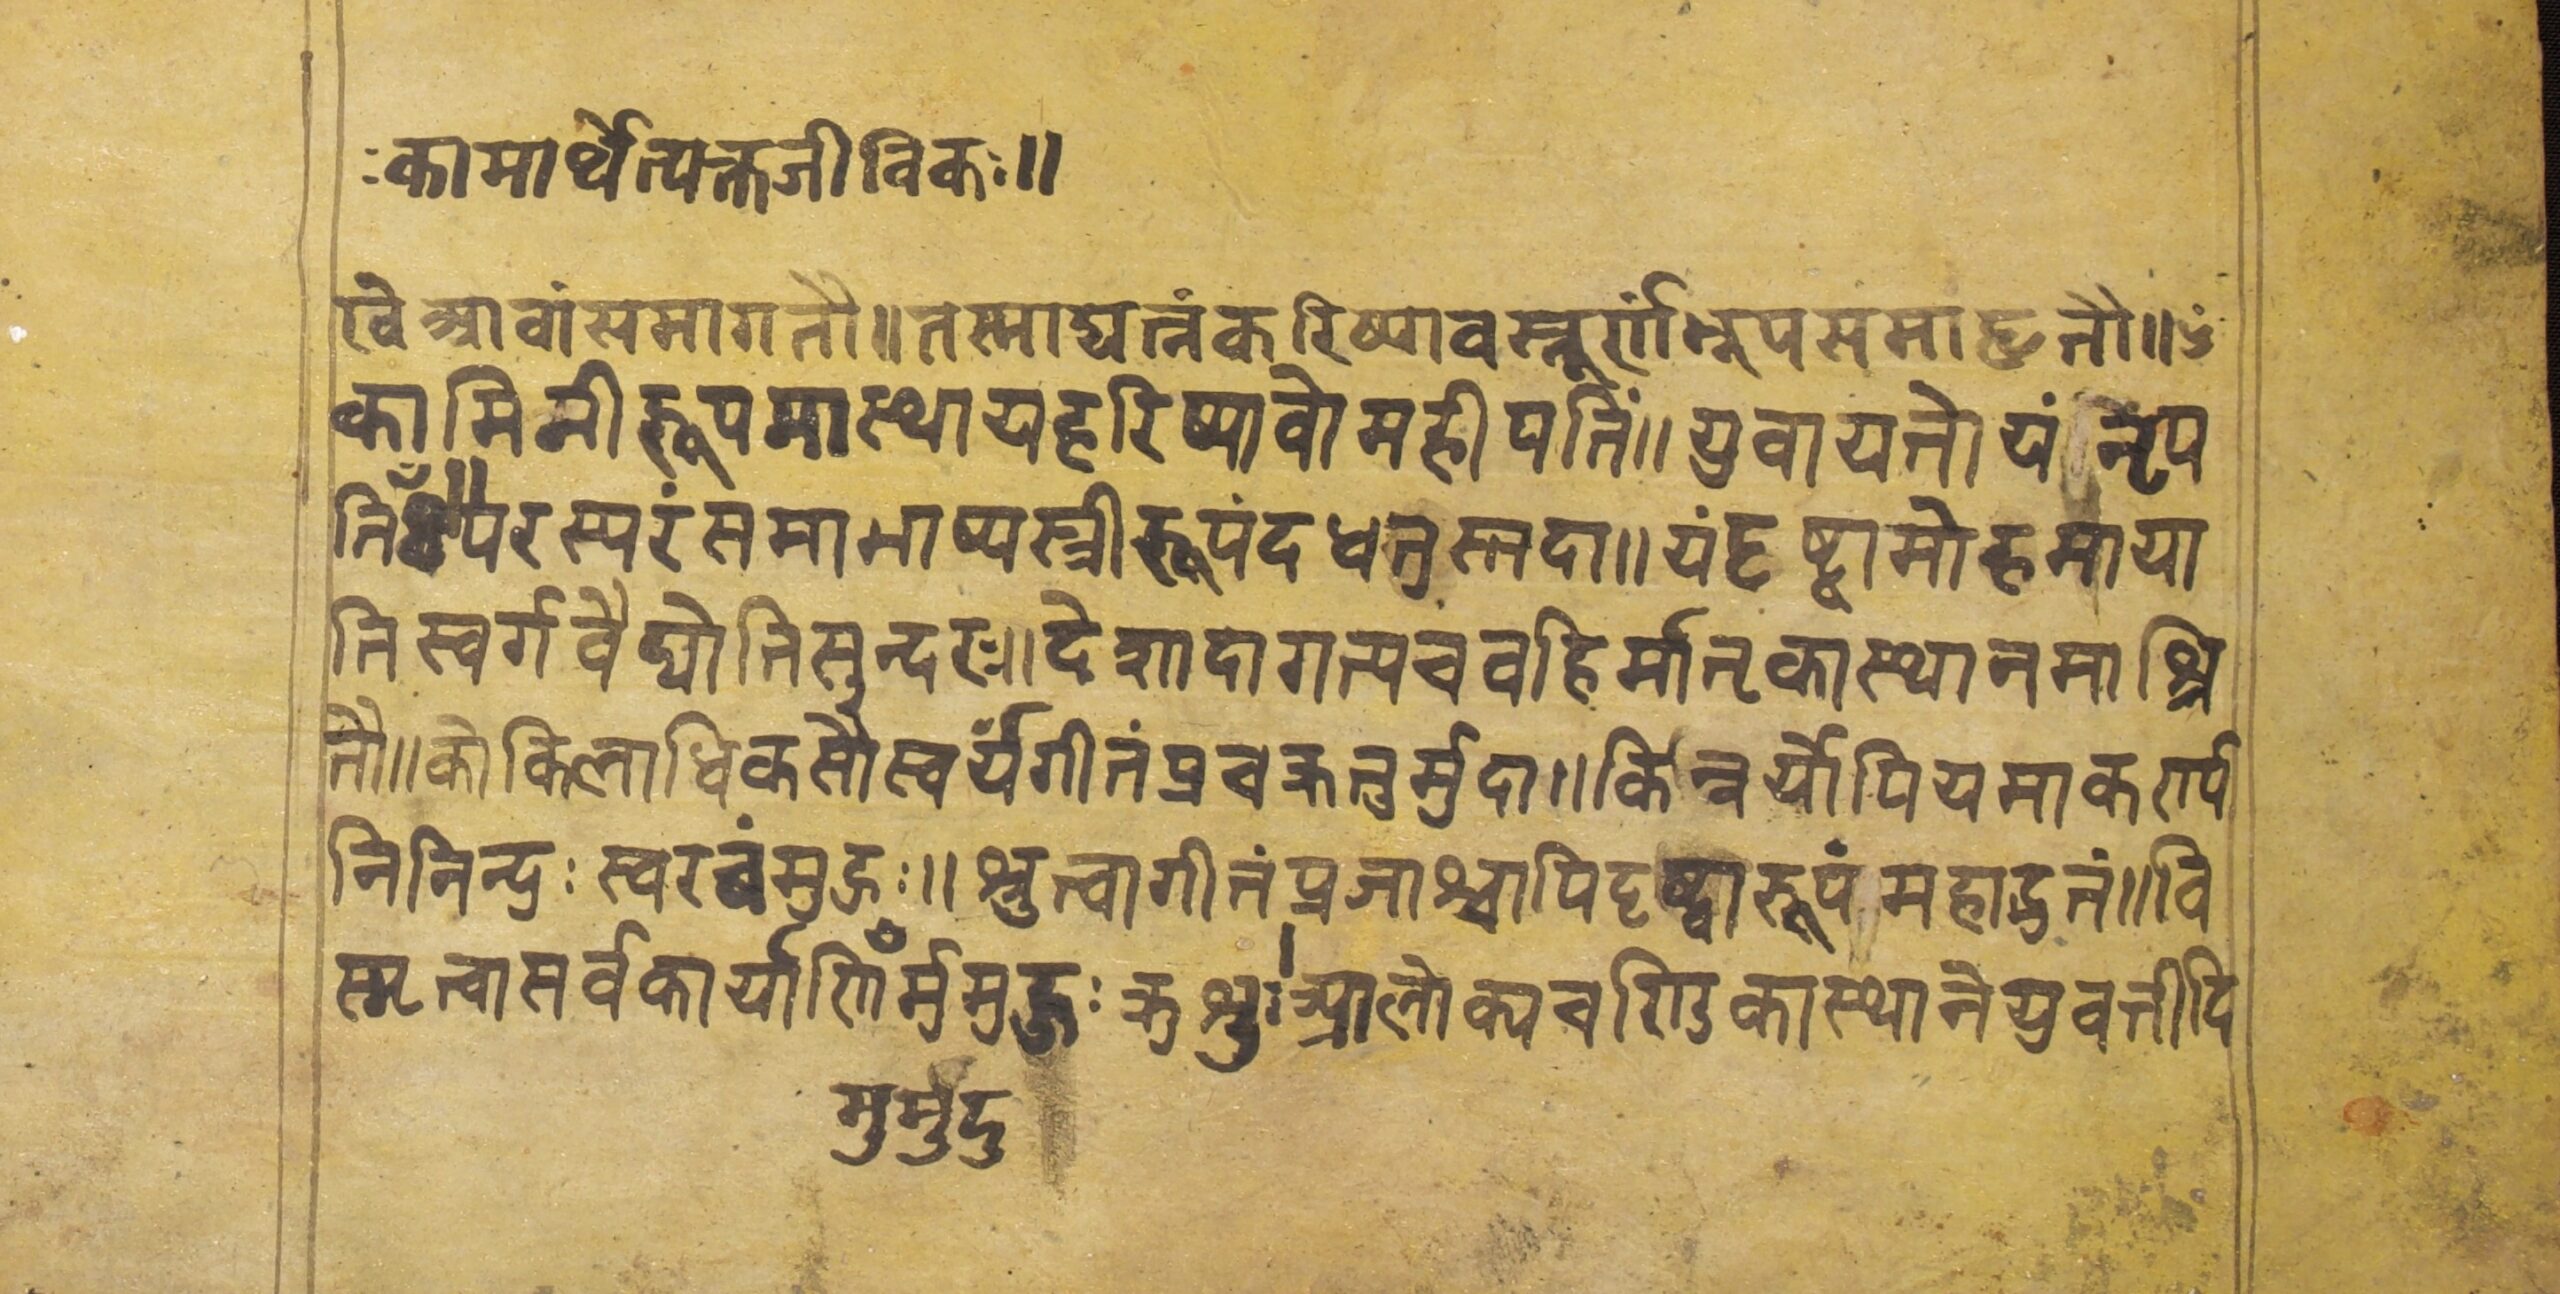 ः कामार्थे त्यक्तजीविकः॥
खे आवां समागतौ॥ तस्माद्यत्नं करिष्यावस्तूर्णं भूपसमाहृतौ॥
कामिनीरूपमास्थाय हरिष्यावो महीपतिं॥ युवायतो यं नृप
ति परस्परं समाभाष्य स्त्रीरूपं दधतुस्तदा॥ यं दृष्ट्वा मोहमाया
ति स्वर्गवैद्योतिसुन्दरः॥ देशादागत्य च वहिर्मातृकास्थानमाश्रि
तौ॥ कोकिलाधिकसौस्वर्यगीतं प्रचक्रतुर्मुदा॥ किन्नर्योपि यमाकर्ण्य
निनिन्दुः स्वरवं मुहुः॥ श्रुत्वा गीतं प्रजाश्चापि दृष्ट्वा रूपं महाद्भुतं॥ वि
स्मृत्वा सर्वकार्याणि मुमुहुः आलोक्य चण्डिकास्थाने युवती दि
मुर्मुदु